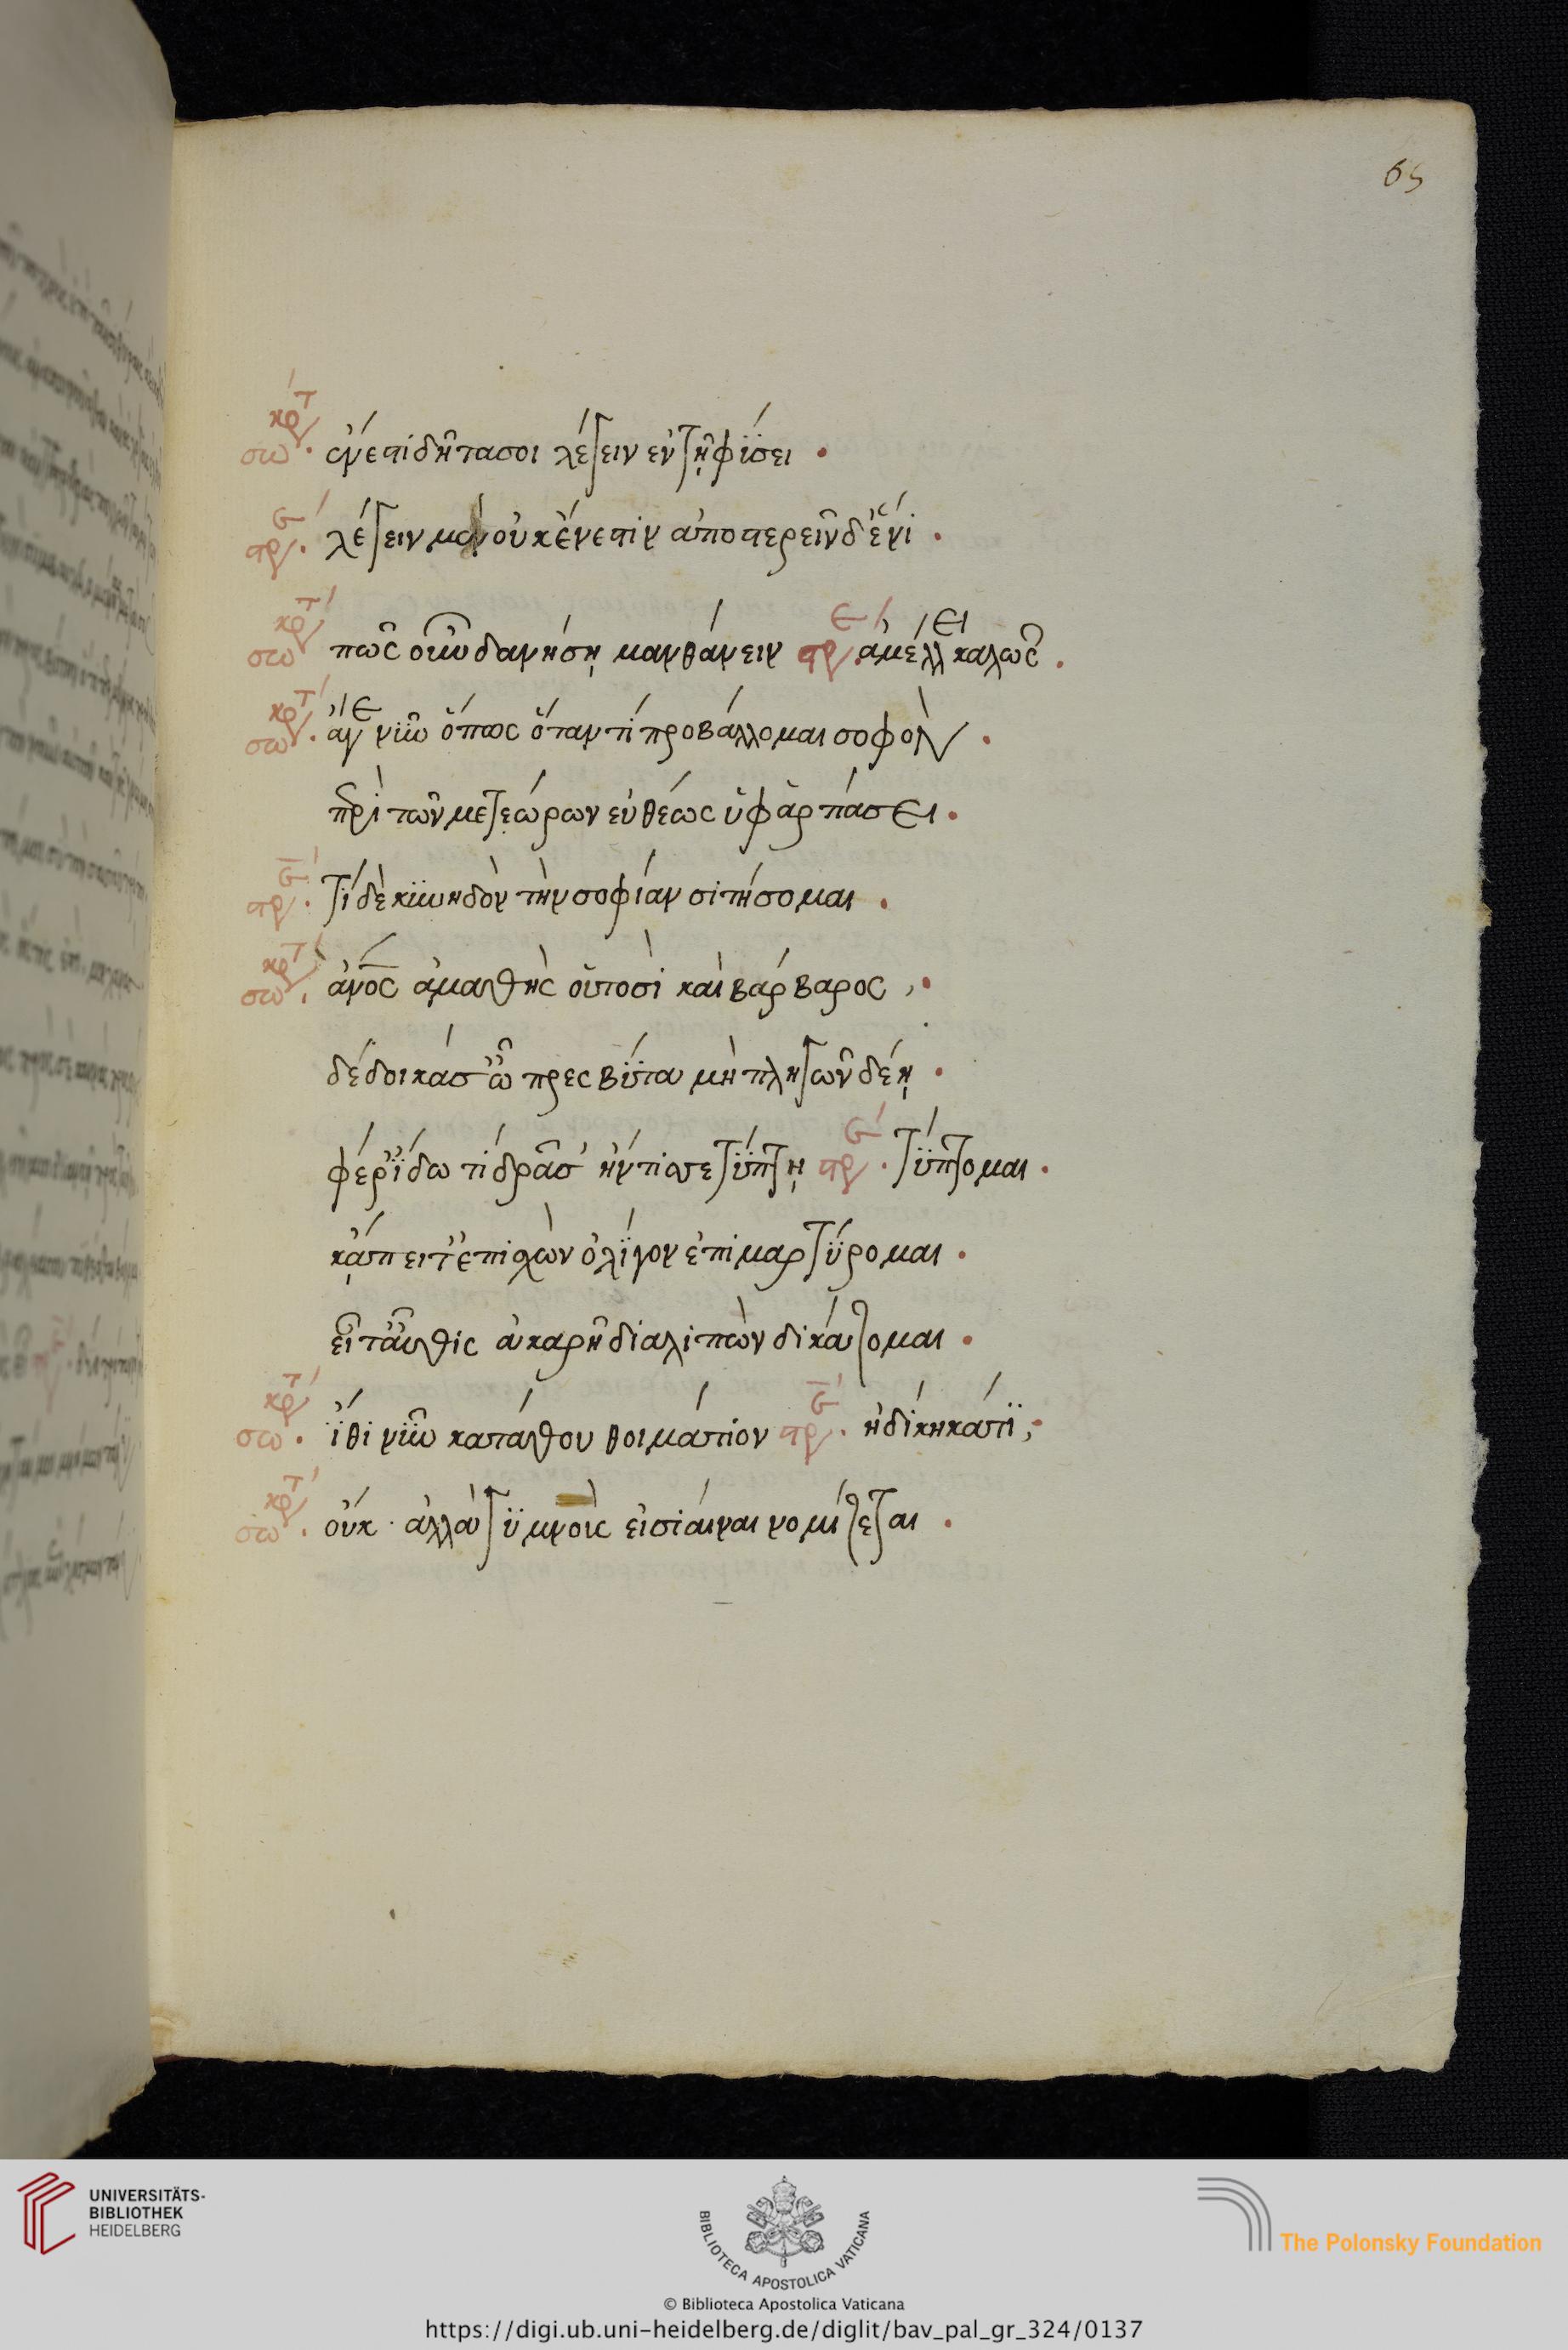 65
σωκρτ. ἔνεστι δῆτα σοι λέγειν ἐν τῇ φύσει.
στρ. λέγειν μὲν οὐκ ἔνεστιν ἀποστερεῖν δ' ἔνι.
σωκρτ πῶς οὖν δυνήσῃ μανθάνειν στρε. ἀμέλει καλῶς.
σωκρτ. ἄγε νῦν ὅπως ὅταν τι προβάλλομαι σοφὸν.
περὶ τῶν μετεώρων εὐθέως ὑφαρπάσει.
στρ. τί δὲ κυνηδὸν τὴν σοφίαν σιτήσομαι.
σωκρτ. ἄνος ἀμαθὴς οὑτοσὶ καὶ βάρβαρος.
δέδοικά σ' ὦ πρεσβῦτα μὴ πληγῶν δέῃ.
φέρ' ἴδω τί δρᾷς ἤν τις σε τύπτῃ στρ. τύπτομαι.
κἄπειτ' ἐπισχὼν ὀλίγον ἐπιμαρτύρομαι.
εἶτ' αὖθις ἀκαρῆ διαλιπὼν δικάζομαι.
σωκρτ. ἴθι νῦν κατάθου θοιμάτιον στρ. ἠδίκηκά τι;
σωκρτ. οὔκ. ἀλλὰ γυμνοὺς εἰσιέναι νομίζεται.
UNIVERSITÄTS-
BIBLIOTHEK
HEIDELBERG
BIBLIOTECA APOSTOLICA VATICANA
The Polonsky Foundation
© Biblioteca Apostolica Vaticana
https://digi.ub.uni-heidelberg.de/diglit/bav_pal_gr_324/0137